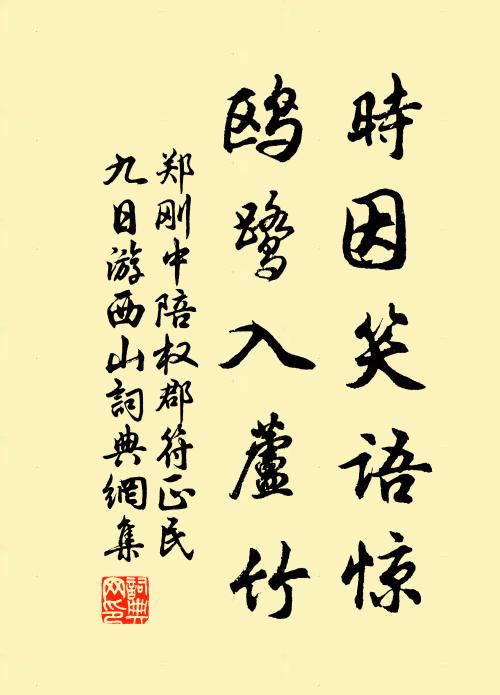 時因笑语惊
鸥鹭入蘆竹
郑刚中陪权郡符正民
九日游西山詞典網集